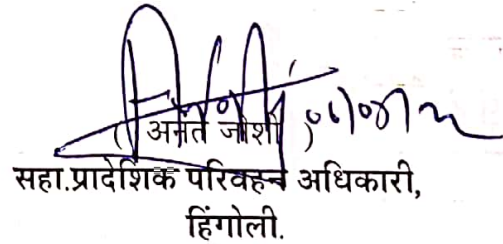 ( अनंत जोशी )
सहा.प्रादेशिक परिवहन अधिकारी,
हिंगोली.